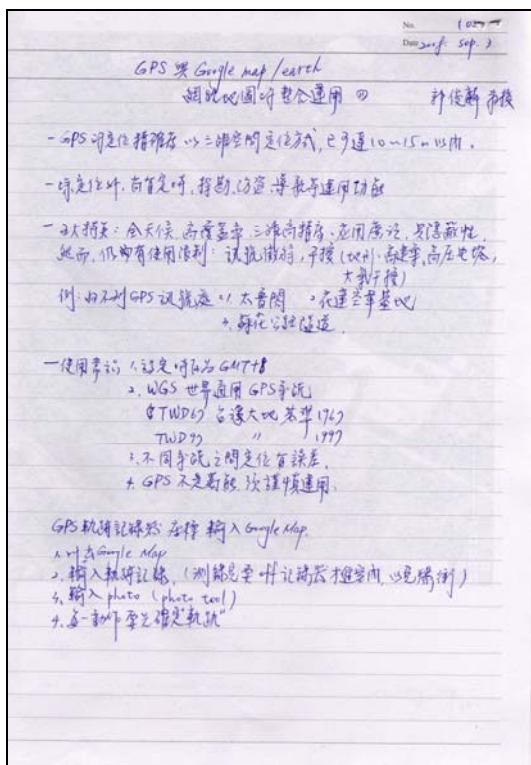 No.
Date Sep. 3
GPS 與 Google map/earth
網路地圖的整合運用 郭俊麟 教授
- GPS的定位精確度以三維空間定位方式, 已可達10~15m以內.
- 除定位外, 尚有定時, 探勘, 導航等運用功能
- 五大特點: 全天候, 高覆蓋率, 三維高精度, 應用廣泛, 具隱蔽性,
然而, 仍有使用限制: 訊號微弱, 干擾(地形, 高建築, 高壓電塔,
大氣干擾)
例: 收不到GPS訊號處 1. 太魯閣 2. 花蓮空軍基地
3. 蘇花公路隧道.
- 使用常識 1. 設定時區為 GMT+8
2. WGS 世界通用GPS系統
TWD67 台灣大地基準 1967
TWD97 〃 1997
3. 不同系統之間定位有誤差.
4. GPS 不是萬能, 須謹慎運用.
GPS軌跡記錄 輸入 Google Map.
1. Google Map
2. 輸入軌跡記錄,
3. 輸入 photo (photo tool)
4. 每一動作要先確定"軌跡"